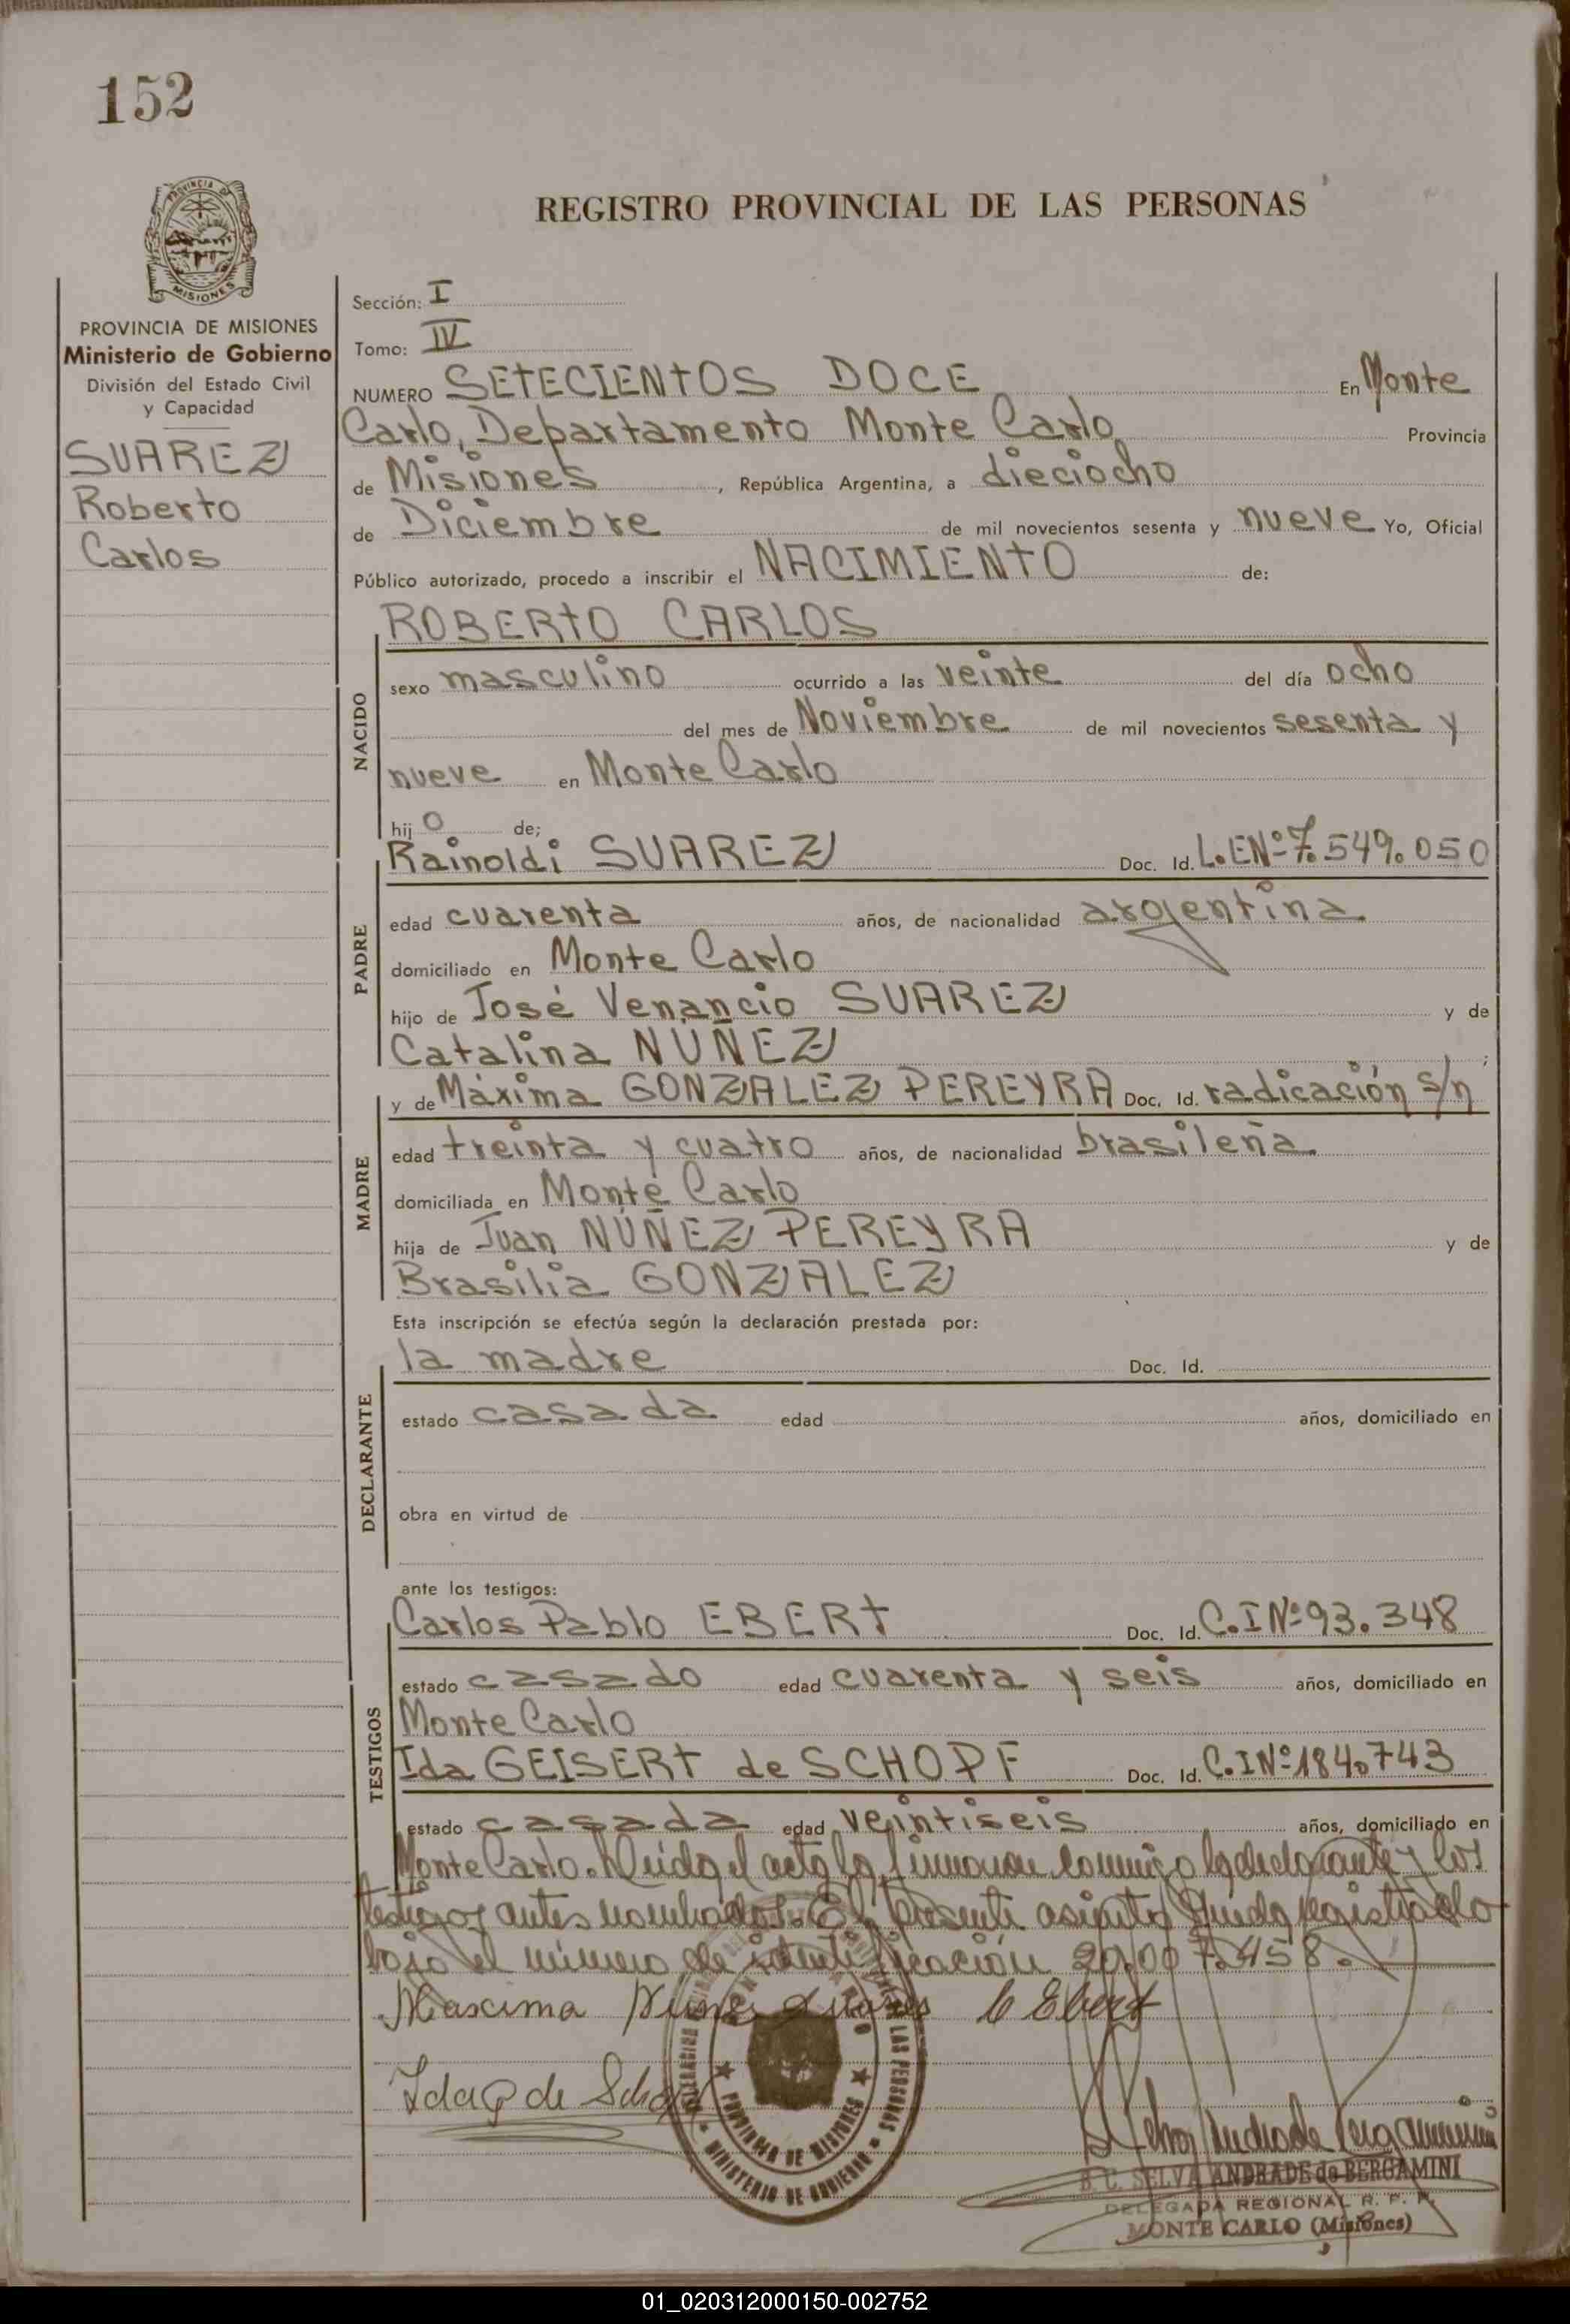 152
REGISTRO PROVINCIAL DE LAS PERSONAS
PROVINCIA DE
MISIONES
PROVINCIA DE MISIONES
Ministerio de Gobierno
División del Estado Civil
y Capacidad
SUAREZ
Roberto
Carlos
Sección: I
Tomo: IV
NUMERO SETECIENTOS DOCE En Monte
Carlo, Departamento Monte Carlo, Provincia
de Misiones, República Argentina, a dieciocho
de Diciembre de mil novecientos sesenta y nueve Yo, Oficial
Público autorizado, procedo a inscribir el NACIMIENTO de:
ROBERTO CARLOS
NACIDO
sexo masculino ocurrido a las veinte del día ocho
del mes de Noviembre de mil novecientos sesenta y
nueve en Monte Carlo
hijo de;
Rainoldi SUAREZ Doc. Id. L.E Nº 7.549.050
PADRE
edad cuarenta años, de nacionalidad argentina
domiciliado en Monte Carlo
hijo de José Venancio SUAREZ y de
Catalina NUÑEZ ;
y de Máxima GONZALEZ PEREYRA Doc. Id. radicación s/n
MADRE
edad treinta y cuatro años, de nacionalidad brasileña
domiciliada en Monte Carlo
hija de Juan NÚÑEZ PEREYRA y de
Brasilia GONZALEZ
Esta inscripción se efectúa según la declaración prestada por:
la madre Doc. Id.
DECLARANTE
estado casada edad años, domiciliado en
obra en virtud de
ante los testigos:
Carlos Pablo EBERT Doc. Id. C.I Nº 93.348
TESTIGOS
estado casado edad cuarenta y seis años, domiciliado en
Monte Carlo
Ida GEISERT de SCHOPF Doc. Id. C.I Nº 184.743
estado casada edad veintiseis años, domiciliado en
Monte Carlo. Leída el acta la firmaron conmigo la declarante y los
testigos antes nombrados. El presente asiento queda registrado
bajo el número de identificación 20.007.458.
Maxima Nunes Suares C Ebert
Ida G de Schopf
LAS PERSONAS
PROVINCIA DE MISIONES
MINISTERIO DE GOBIERNO
Selva Andrade Bergamini
B. C. SELVA ANDRADE de BERGAMINI
DELEGADA REGIONAL R. P. P.
MONTE CARLO (Misiones)
01_020312000150-002752